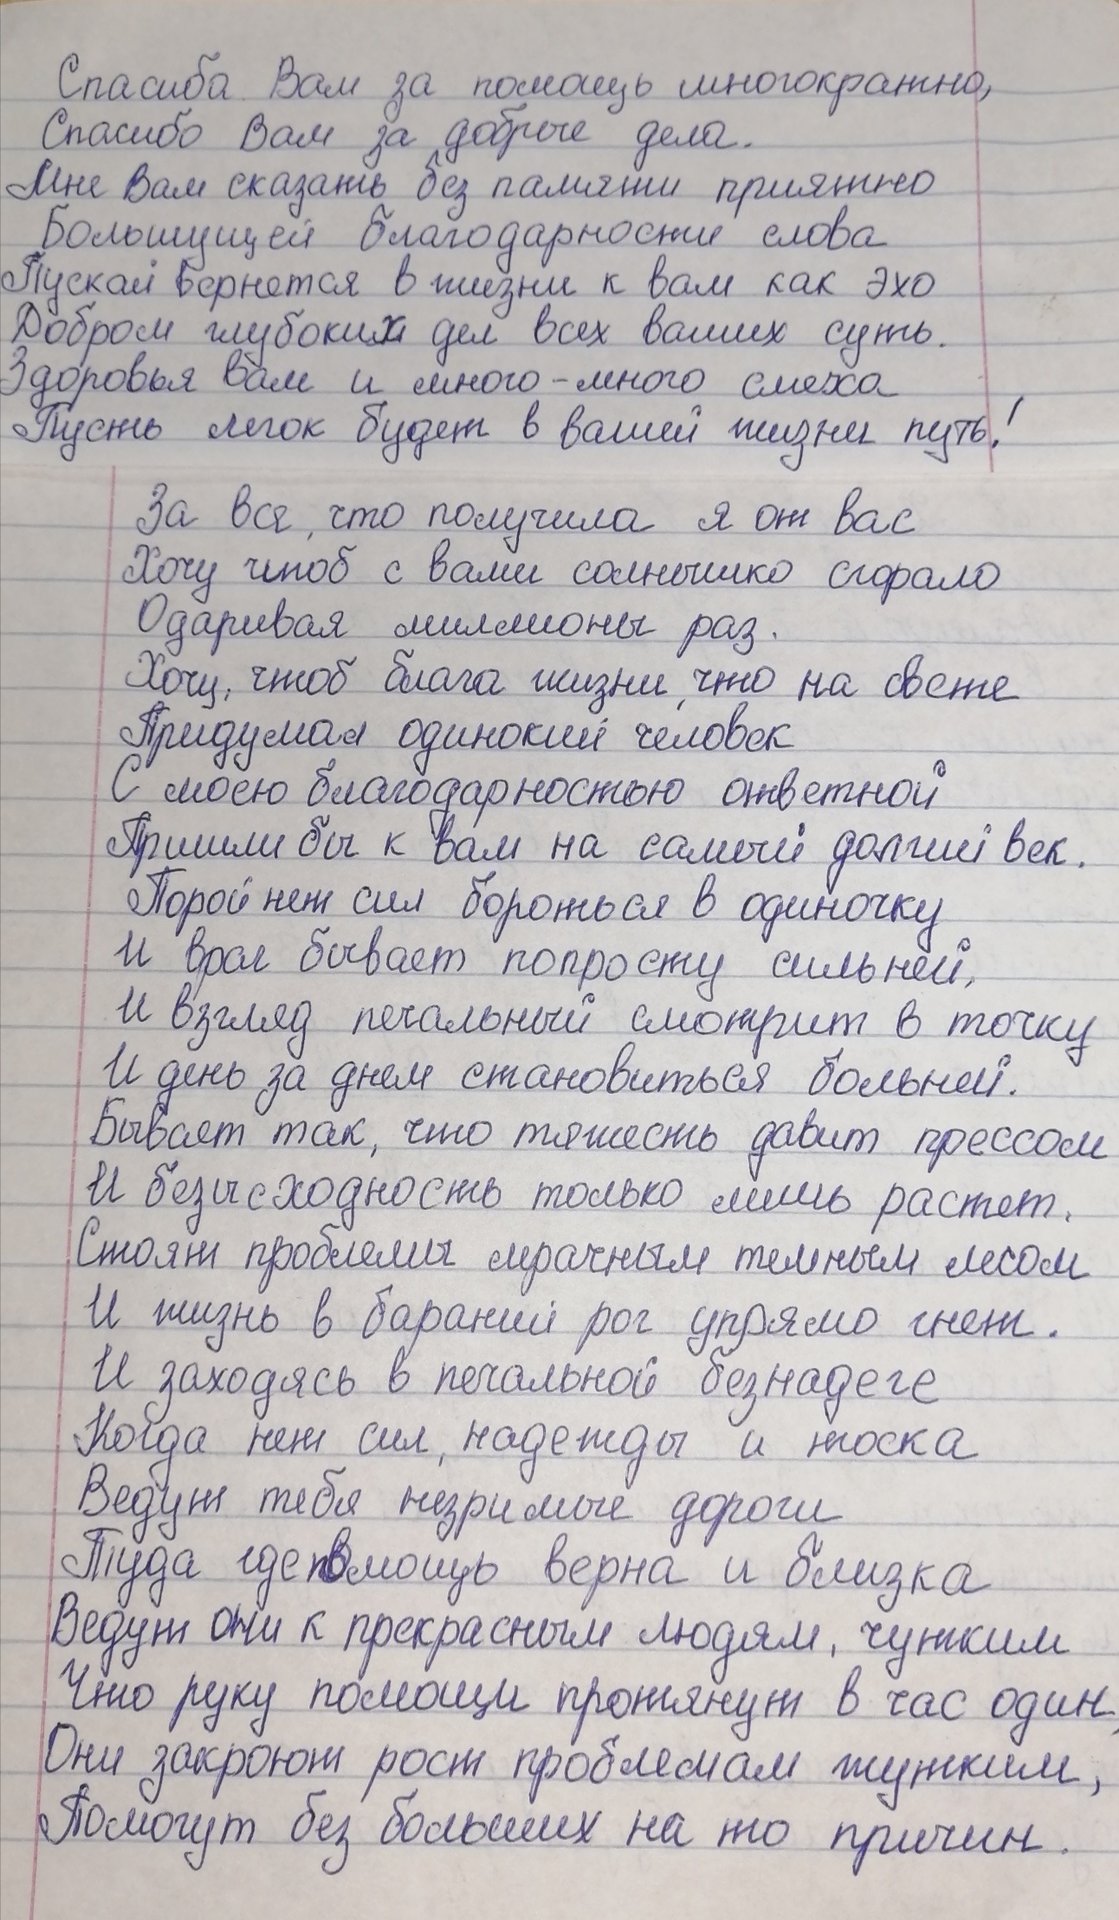 Спасиба Вам за помощь многократно,
Спасибо Вам за добрые дела.
Мне Вам сказать без памяти приятно
Большущей благодарности слова
Пускай вернется в жизни к вам как эхо
Добром глубоких дел всех ваших суть.
Здоровья Вам и много-много смеха
Пусть легок будет в вашей жизни путь!
За все, что получила я от вас
Хочу чтоб с вами солнышко сгорало
Одаривая миллионы раз.
Хочу, чтоб блага жизни, что на свете
Придумал одинокий человек
С моею благодарностью ответной
Пришли бы к вам на самый долгий век.
Порой нет сил бороться в одиночку
И врал бывает попросту сильней,
И взгляд печальный смотрит в точку
И день за днем становиться больней.
Бывает так, что тяжесть давит прессом
И безысходность только лишь растет.
Стоят проблемы мрачным темным лесом
И жизнь в бараний рог упрямо гнет.
И заходясь в печальной безнадеге
Когда нет сил, надежды и тоска
Ведут тебя незримые дороги
Туда где помощь верна и близка
Ведут они к прекрасным людям, чутким
Что руку помощи протянут в час один,
Они закроют рост проблемам жутким,
Помогут без больших на то причин.